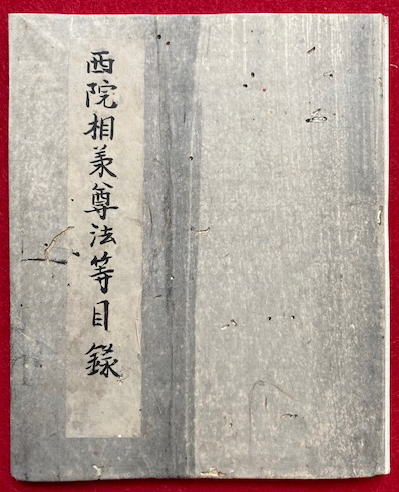 西院相承尊法等目録